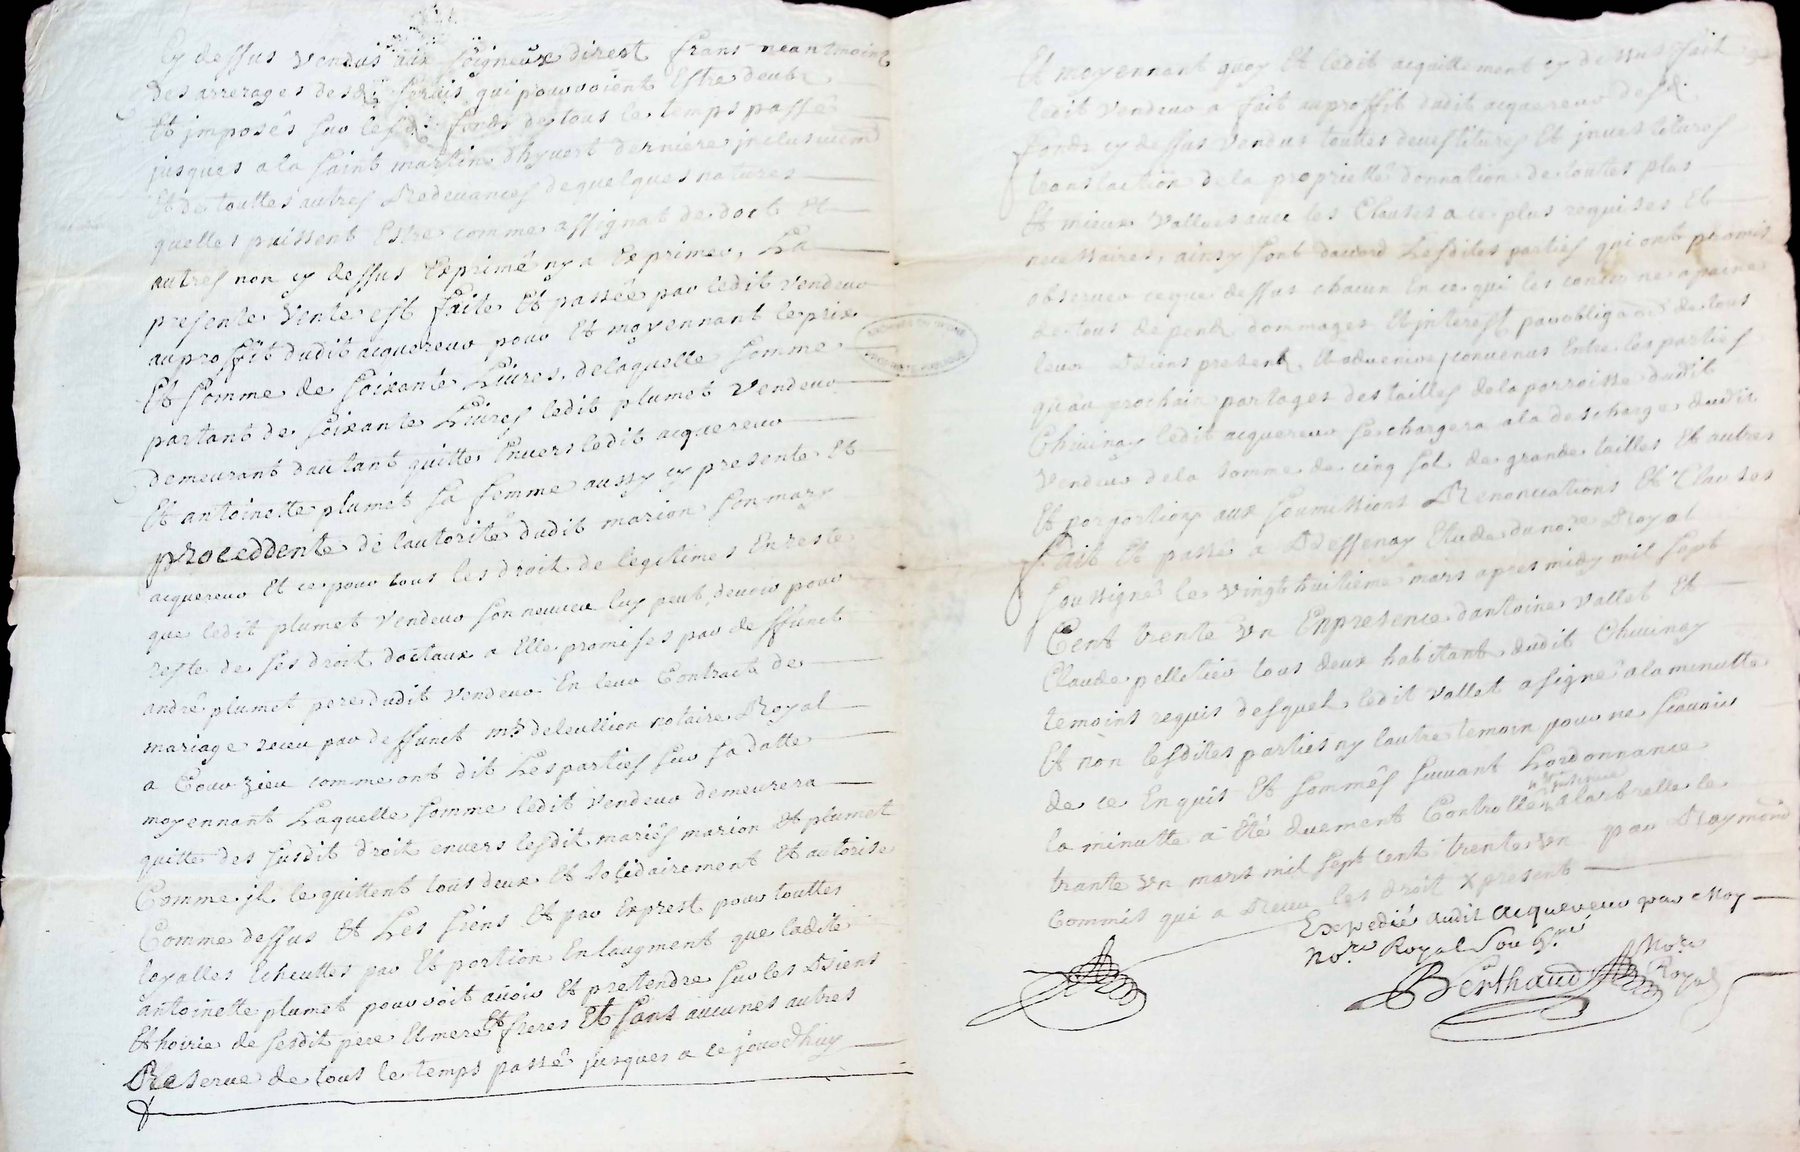 Cy dessus vendus aux seigneurs direct frans neantmoins
des arrerages desd. servis qui pouvoient Estre deubz
Et imposés sur lesd. fonds de tous le temps passé
jusques a la saint martin dhyvert derniere inclusivem
Et de touttes autres Redevances de quelques natures
quelles puissent Estre comme assignat de doct Et
autres non cy dessus Exprimé ny a Exprimer, La
presente vente est faite Et passée par ledit vendeur
au proffit dudit acquereur pour Et moyennant le prix
Et somme de soixante Livres, de laquelle somme
partant de soixante Livres ledit plumet vendeur
demeurant dautant quitte Envers ledit acquereur
Et antoinette plumet sa femme aussy cy presente Et
proceddente de lautorité dudit marion son mary
acquereur Et ce pour tous les droit de legitimes En reste
que ledit plumet vendeur son neuveu luy peut devoir pour
reste de ses droit doctaux a Elle promises par deffunct
andré plumet pere dudit vendeur En leur Contract de
mariage receu par deffunct mr deleullion notaire Royal
a Courzieu comme ont dit Les parties sur sa datte
moyennant Laquelle somme ledit vendeur demeurera
quitte des susdit droit envers lesdit mariés marion Et plumet
Comme jl le quittent tous deux Et solidairement Et autorise
Comme dessus Et Les siens Et par Exprest pour touttes
loyalles Echeuttes par Et portion En laugment que ladite
antoinette plumet pouvoit avoir Et pretendre sur les Biens
Et hoirie de sesdit pere Et mere Et freres Et sans aucunes autres
Reserve de tous le temps passé jusques a ce jourdhuy
Et moyennant quoy Et ledit acquittement cy dessus fait
ledit vendeur a fait au proffit dudit acquereur desd.
fonds cy dessus vendus touttes devestitures Et investitures
translation de la proprietté donnation de toutes plus
Et mieux vallues avec les Clauses a ce plus requises Et
necessaires, ainsy sont daccord Lesdites parties qui ont promis
observer ce que dessus chacun En ce qui les concerne a peine
de tous depens dommages Et interest par obligaon de tous
leur Biens present Et advenire, convenus Entre les parties
quau prochain partages des tailles de la parroisse dudit
Chevinay ledit acquereur se chargera a la descharge dudit
vendeur de la somme de cinq sol de grande tailles Et autres
Et porportions aux soumissions Renonciations Et Clauses
fait Et passé a Bessenay Etude du no.re Royal
soussigné le vingt huitieme mars apres midy mil sept
Cent trente Un En presence dantoine vallet Et
Claude pelletier tous deux habitant dudit Chevinay
temoins requis desquel ledit vallet a signé a la minutte
Et non lesdites parties ny lautre temoin pour ne scavoir
de ce Enquis Et sommés suivant Lordonnance
la minutte a été duement Controllée a larbrelle le
trante un mars mil sept cent trente un par Raymond
Commis qui a Receu les droit present
Expedié audit acquereur par Moy
No.re Royal Sousigné
Berthaud No.re
Royal